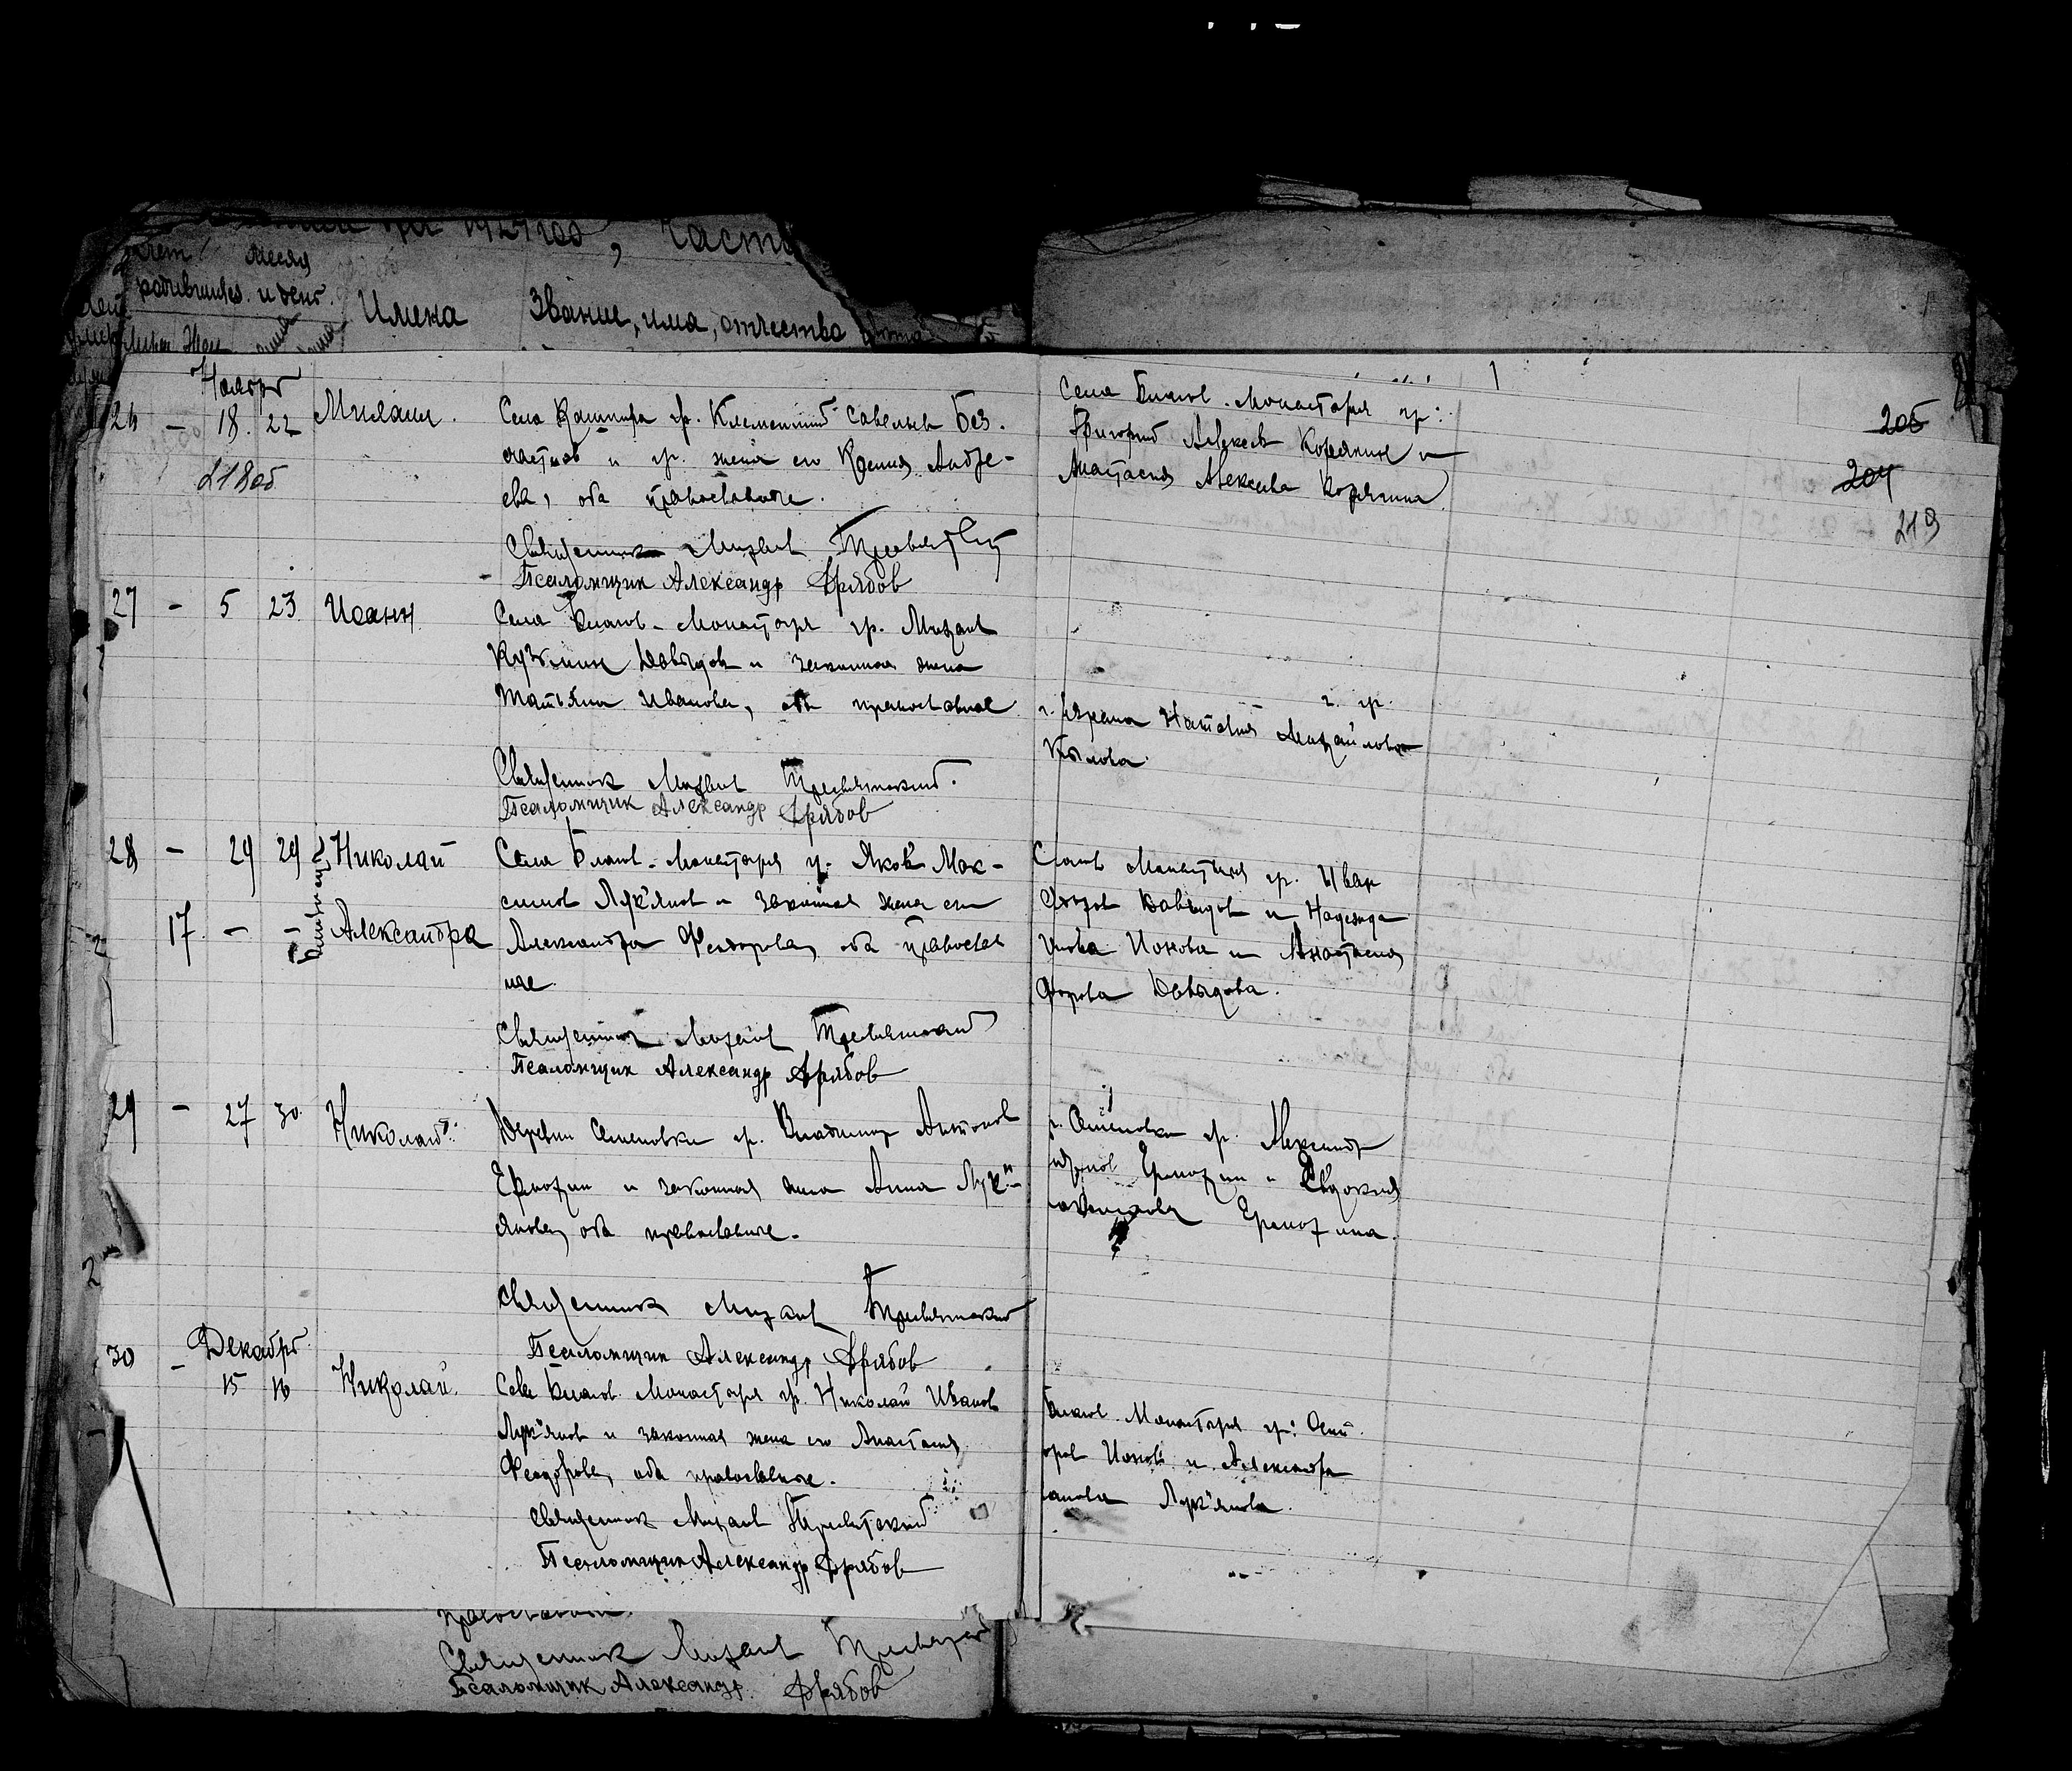 за 1924 год, часть
месяц
родившихся. и день.
Имена
Звание, имя, отчество
Ноябрь
24 - 18. 22 Михаил.
Села Кашпира гр. Клементий Савельев Без-
частнов и гр. жена его Ксения Андре-
ева, оба православные.
218об
Священник Михаил Тресвятский
Псаломщик Александр Фрябов
27 - 5 23 Иоанн.
Села Благов. Монастыря гр. Михаил
Кузьмин Давыдов и законная жена
Татьяна Иванова, оба православные
Священник Михаил Тресвятский.
Псаломщик Александр Фрябов
28 - 29 29 Николай
17. - - Александра
Близнецы
Села Благов. Монастыря гр. Яков Мак-
симов Лукъянов и законная жена его
Александра Феодорова, оба православ
ные.
Священник Михаил Тресвятский
Псаломщик Александр Фрябов
29 - 27 30. Николай.
Деревни Семеновки гр. Владимир Антонов
Ермохин и законная жена Анна Лукъ-
янова, оба православные.
Священник Михаил Тресвятский
Псаломщик Александр Фрябов
Декабрь
30 - 15 16 Николай.
Села Благов. Монастыря гр. Николай Иванов
Лукъянов и законная жена его Анастасия
Феодорова, оба православные.
Священник Михаил Тресвятский
Псаломщик Александр Фрябов
православные.
Священник Михаил Тресвятский
Псаломщик Александр Фрябов
Села Благов. Монастыря гр:
Григорий Алексеев Корякин и
Анастасия Алексеева Корякина
205
204
219
г. гр.
Наталия Михайлова
Благов Монастыря гр. Иван
Давыдов и Надежда
Ионова и Анастасия
Давыдова.
Семеновки гр. Александр
Ермохин и Евдокия
Ермохина.
Благов. Монастыря гр: Осип
Ионов и Александра
Лукъянова.